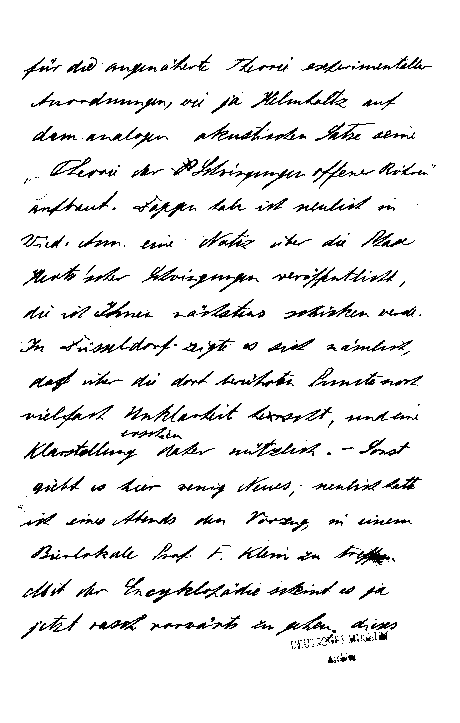 für die angenäherte Theorie experimenteller
Anordnungen, wie ja Helmholtz auf
dem analogen akustischen Satze seine
„Theorie der Schwingungen offener Röhren"
aufbaut. habe ich neulich in
Wied. Ann. eine Notiz über die Phase
Hertz'scher Schwingungen veröffentlicht,
die ich Ihnen nächstens schicken werde.
In Düsseldorf zeigte es sich nämlich,
daß über die dort berührten Puncte noch
vielfach Unklarheit herrscht, und eine
Klarstellung erschien daher nützlich. – Sonst
giebt es hier wenig Neues; neulich hatte
ich eines Abends den Vorzug, in einem
Bierlokale Prof. F. Klein zu treffen.
Mit der Encyklopädie scheint es ja
jetzt rasch vorwärts zu gehen, dieses
DEUTSCHES MUSEUM